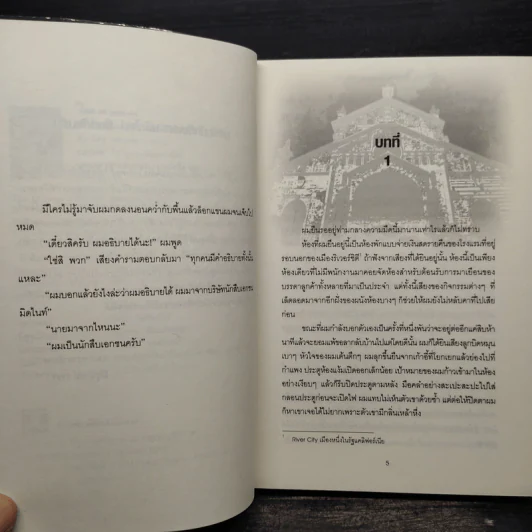 มีใครไม่รู้มาจับผมกดลงนอนคว่ำกับพื้นแล้วล็อกแขนผมจนเจ็บไป
หมด
“เดี๋ยวสิครับ ผมอธิบายได้นะ!” ผมพูด
“ใช่สิ พวก” เสียงคำรามตอบกลับมา “ทุกคนมีคำอธิบายทั้งนั้น
แหละ”
“ผมบอกแล้วยังไงล่ะว่าผมอธิบายได้ ผมมาจากบริษัทนักสืบเอเซน
มิดไนท์”
“นายมาจากไหนนะ”
“ผมเป็นนักสืบเอกชนครับ”
บทที่
1
ผมยืนรออยู่ท่ามกลางความมืดนี้มานานเท่าไรแล้วก็ไม่ทราบ
ห้องที่ผมยืนอยู่นี้เป็นห้องพักแบบจ่ายเงินสดรายคืนของโรงแรมที่อยู่
รอบนอกของเมืองริเวอร์ซิตี้¹ ถ้าฟังจากเสียงที่ได้ยินอยู่นั้น ห้องนี้เป็นเพียง
ห้องเดียวที่ไม่มีพนักงานมาคอยจัดห้องสำหรับต้อนรับการมาเยือนของ
บรรดาลูกค้าทั้งหลายที่มาเป็นประจำ แต่ทั้งนี้เสียงของกิจกรรมต่างๆ ที่
เล็ดลอดมาจากอีกฝั่งของผนังห้องบางๆ ก็ช่วยให้ผมยังไม่หลับคาที่ไปเสีย
ก่อน
ขณะที่ผมกำลังบอกตัวเองเป็นครั้งที่หนึ่งพันว่าจะอยู่ต่ออีกแค่สิบห้า
นาทีแล้วจะยอมแพ้ขอลากลับบ้านไปแค่โดยดีนั้น ผมก็ได้ยินเสียงลูกบิดหมุน
เบาๆ หัวใจของผมเต้นตึกๆ ผมลุกขึ้นยืนจากเก้าอี้ที่โยกเยกแล้วย่องไปที่
กำแพง ประตูห้องแง้มเปิดออกเล็กน้อย เป้าหมายของผมก้าวเข้ามาในห้อง
อย่างเงียบๆ แล้วก็รีบปิดประตูตามหลัง มือคลำอย่างสะเปะสะปะไปใส่
กลอนประตูก่อนจะเปิดไฟ ผมแทบไม่เห็นตัวเขาด้วยซ้ำ แต่ต่อให้ปิดตาผม
ก็หาเขาเจอได้ไม่ยากเพราะตัวเขามีกลิ่นเหล้าหึ่ง
¹ River City เมืองหนึ่งในรัฐแคลิฟอร์เนีย
5